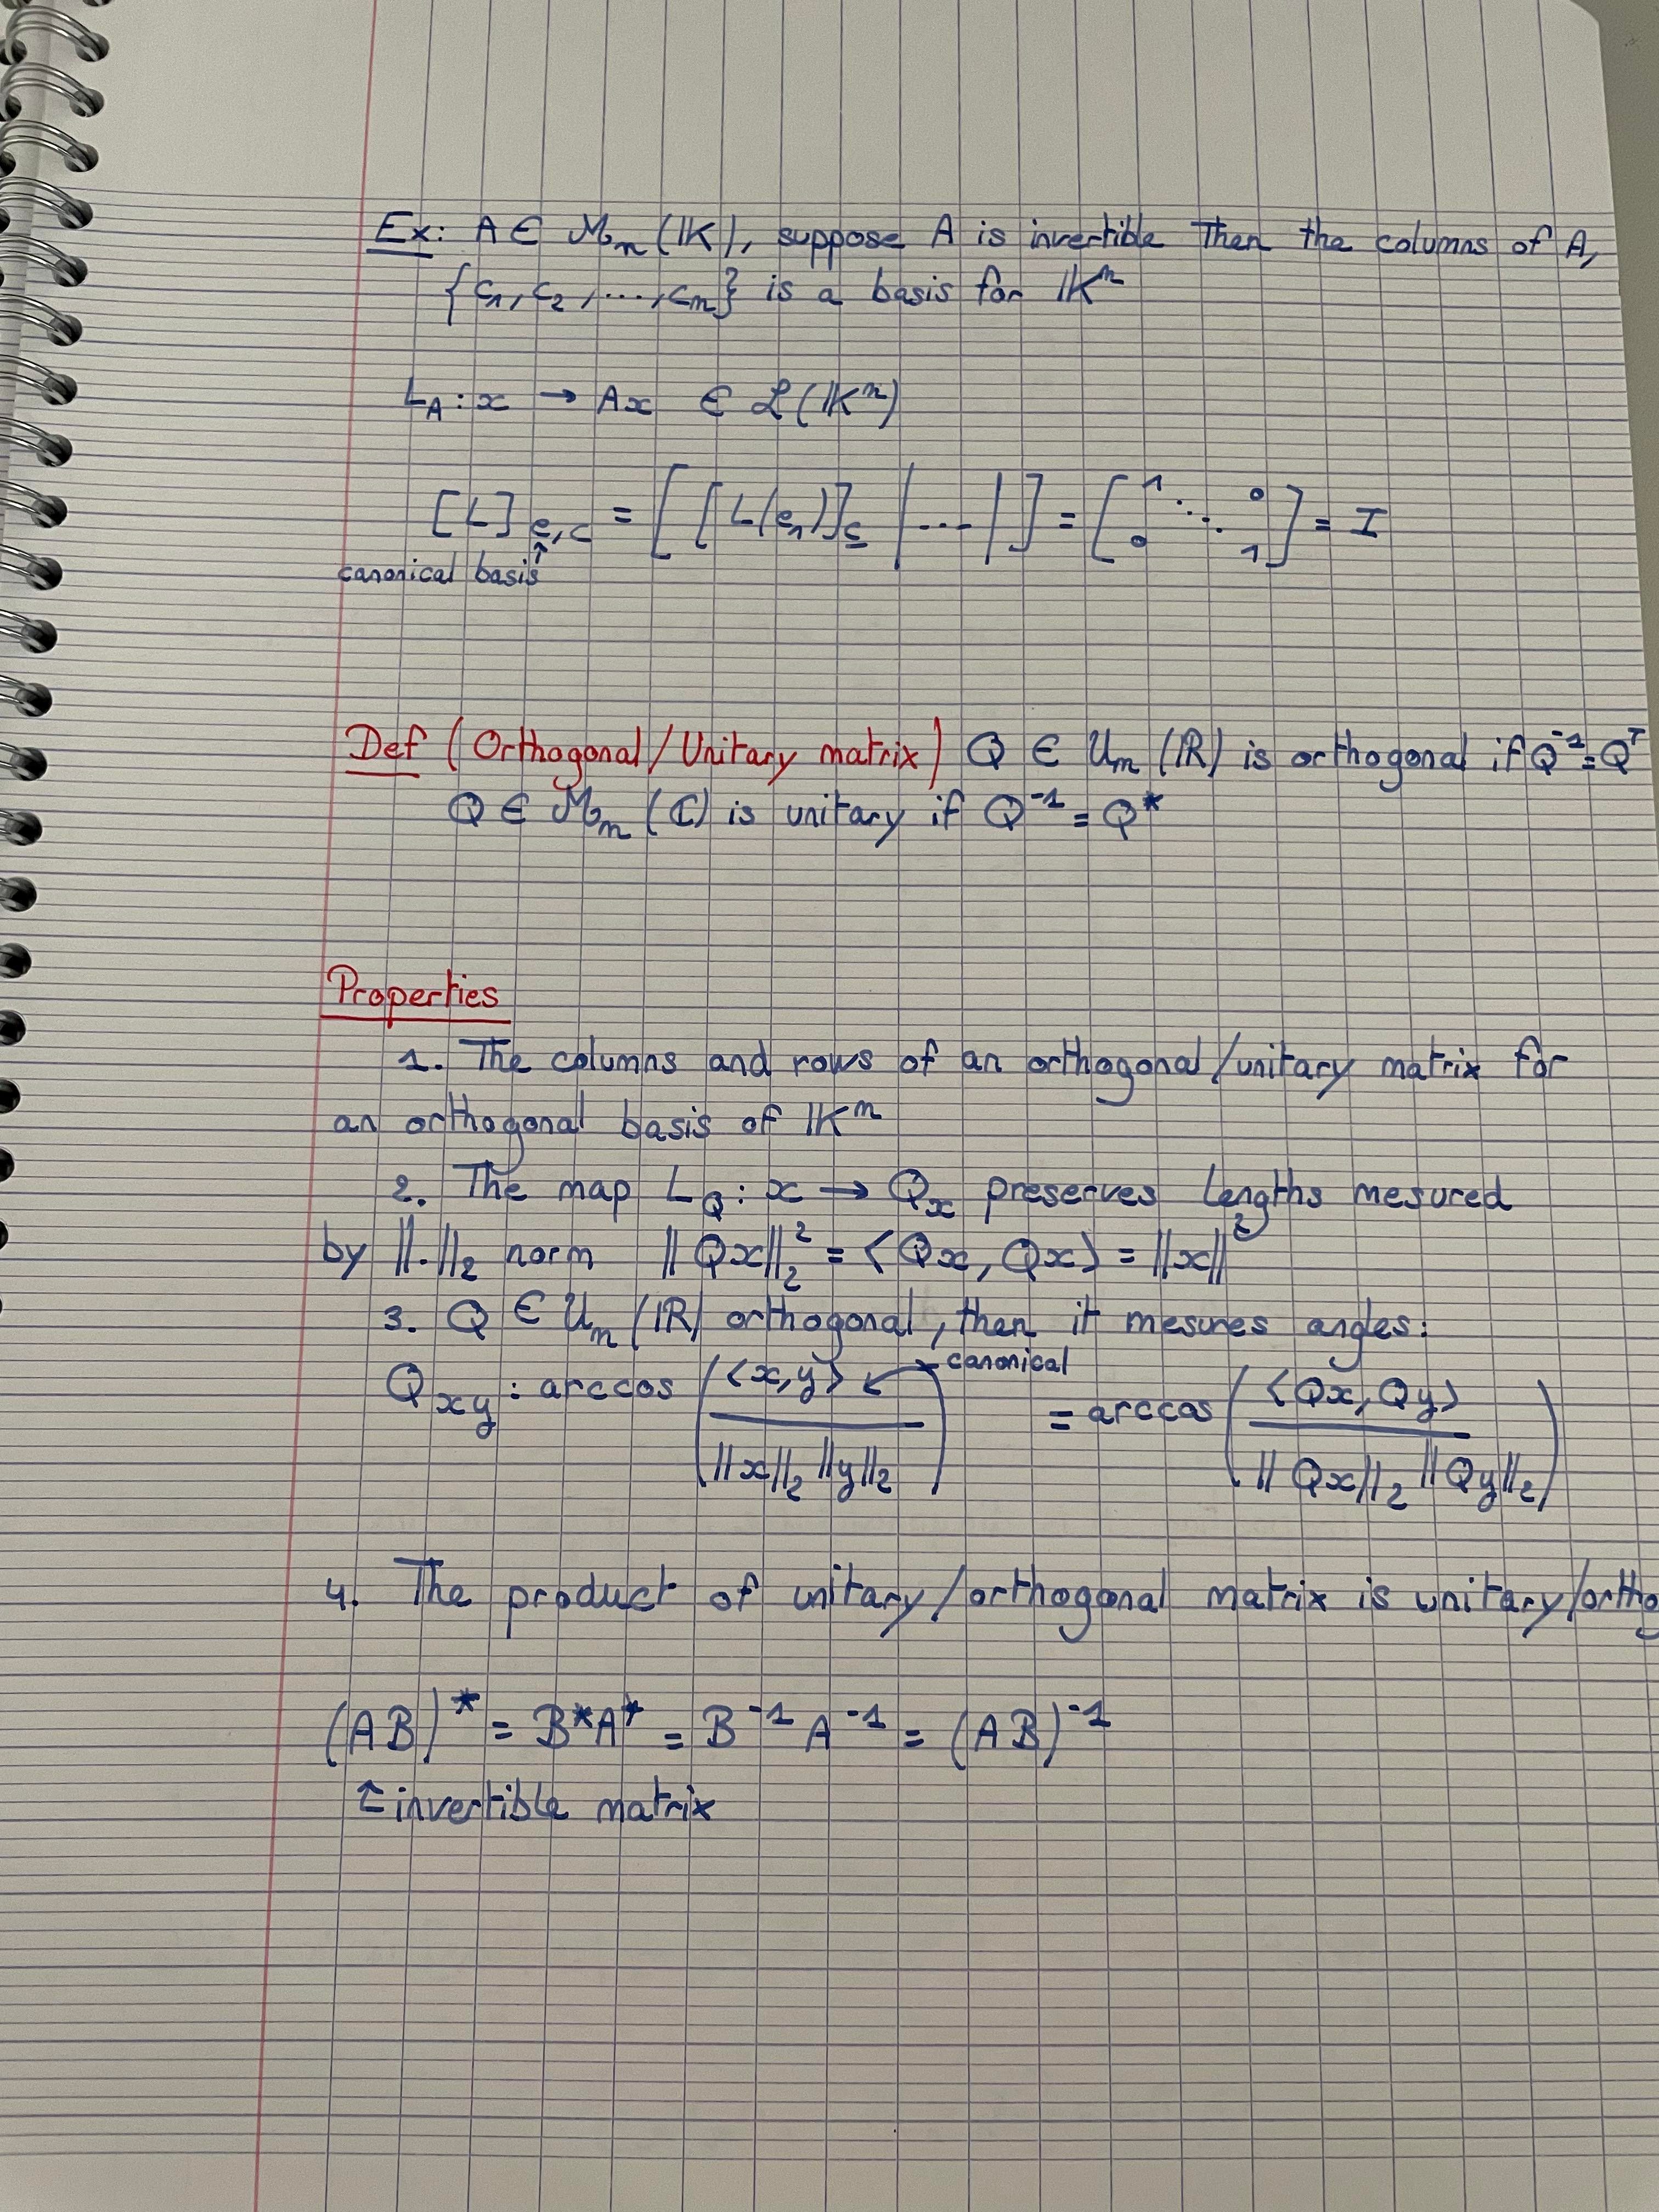 Ex: A ∈ Mn (IK), suppose A is invertible Then the columns of A,
{c1, c2, ..., cn} is a basis for IK^n
L_A : x → Ax ∈ L(IK^n)
[L]_e,c = [ [L(e1)]_c | ... | ] = [ 1 ⋱ 0 0 1 ] = I
canonical basis ↑
Def (Orthogonal/Unitary matrix) Q ∈ Um (IR) is orthogonal if Q^-1 = Q^T
Q ∈ Mm (C) is unitary if Q^-1 = Q*
Properties
1. The columns and rows of an orthogonal/unitary matrix for
an orthogonal basis of IK^n
2. The map L_Q : x → Q_x preserves lengths mesured
by ||.||_2 norm ||Qx||_2^2 = <Qx, Qx> = ||x||^2
3. Q ∈ Un (IR) orthogonal, then it mesures angles:
Q_xy : arccos (<x,y> / ||x||_2 ||y||_2) ← canonical = arccos (<Qx, Qy> / ||Qx||_2 ||Qy||_2)
4. The product of unitary/orthogonal matrix is unitary/orthog
(AB)* = B*A* = B^-1 A^-1 = (AB)^-1
↑ invertible matrix